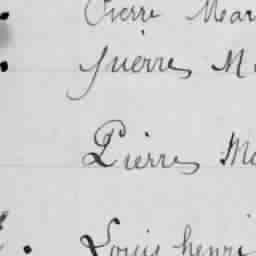 Pierre Mar
Pierre M
Pierre Ma
Louis henri